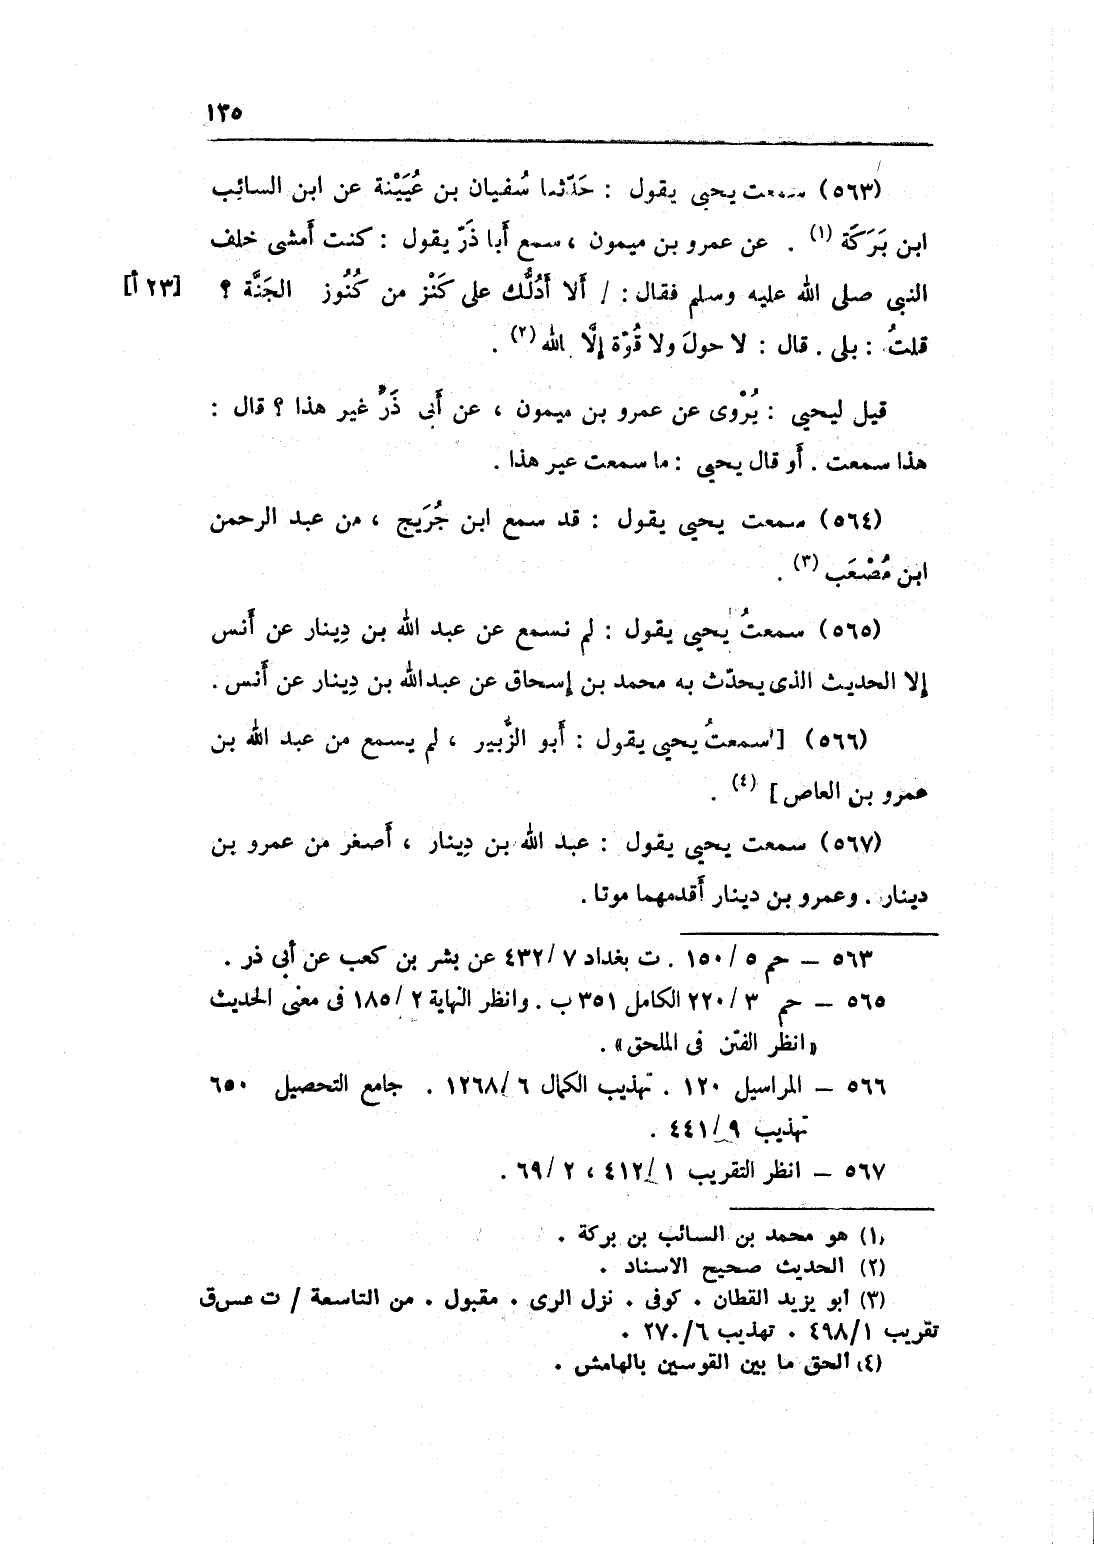 ١٣٥
(٥٦٣) سمعت يحيى يقول : حَدّثنا سُفيان بن عُيَيْنة عن ابن السائِب
ابن بَرَكَة (١) . عن عمرو بن ميمون ، سمع أَبا ذَرّ يقول : كنت أَمشى خلف
النبى صلى الله عليه وسلم فقال : / أَلا أَدُلُّك على كَنْز من كُنُوز الجَنَّة ؟ [٢٣ أ]
قلتُ : بلى . قال : لا حولَ ولا قُوّة إلَّا الله (٢) .
قيل ليحيى : يُرْوى عن عمرو بن ميمون ، عن أَبى ذَرّ غير هذا ؟ قال :
هذا سمعت . أَو قال يحيى : ما سمعت عير هذا .
(٥٦٤) سمعت يحيى يقول : قد سمع ابن جُرَيج ، من عبد الرحمن
ابن مُصْعَب (٣) .
(٥٦٥) سمعتُ يحيى يقول : لم نسمع عن عبد الله بن دِينار عن أَنس
إلا الحديث الذى يحدّث به محمد بن إسحاق عن عبدالله بن دِينار عن أَنس .
(٥٦٦) [ سمعتُ يحيى يقول : أَبو الزُّبير ، لم يسمع من عبد الله بن
عمرو بن العاص ] (٤) .
(٥٦٧) سمعت يحيى يقول : عبد الله بن دِينار ، أَصغر من عمرو بن
دينار . وعمرو بن دينار أَقدمهما موتا .
٥٦٣ – حم ٥ / ١٥٠ . ت بغداد ٧ / ٤٣٢ عن بشر بن كعب عن أبى ذر .
٥٦٥ – حم ٣ / ٢٢٠ الكامل ٣٥١ ب . وانظر النهاية ٢ / ١٨٥ فى معنى الحديث
« انظر الفتن فى الملحق » .
٥٦٦ – المراسيل ١٢٠ . تهذيب الكمال ٦ / ١٢٦٨ . جامع التحصيل ٦٥٠
تهذيب ٩ / ٤٤١ .
٥٦٧ – انظر التقريب ١ / ٤١٢ ، ٢ / ٦٩ .
(١) هو محمد بن السائب بن بركة .
(٢) الحديث صحيح الاسناد .
(٣) أبو يزيد القطان . كوفى . نزل الرى . مقبول . من التاسعة / ت عس ق
تقريب ٤٩٨/١ . تهذيب ٢٧٠/٦ .
(٤) ألحق ما بين القوسين بالهامش .